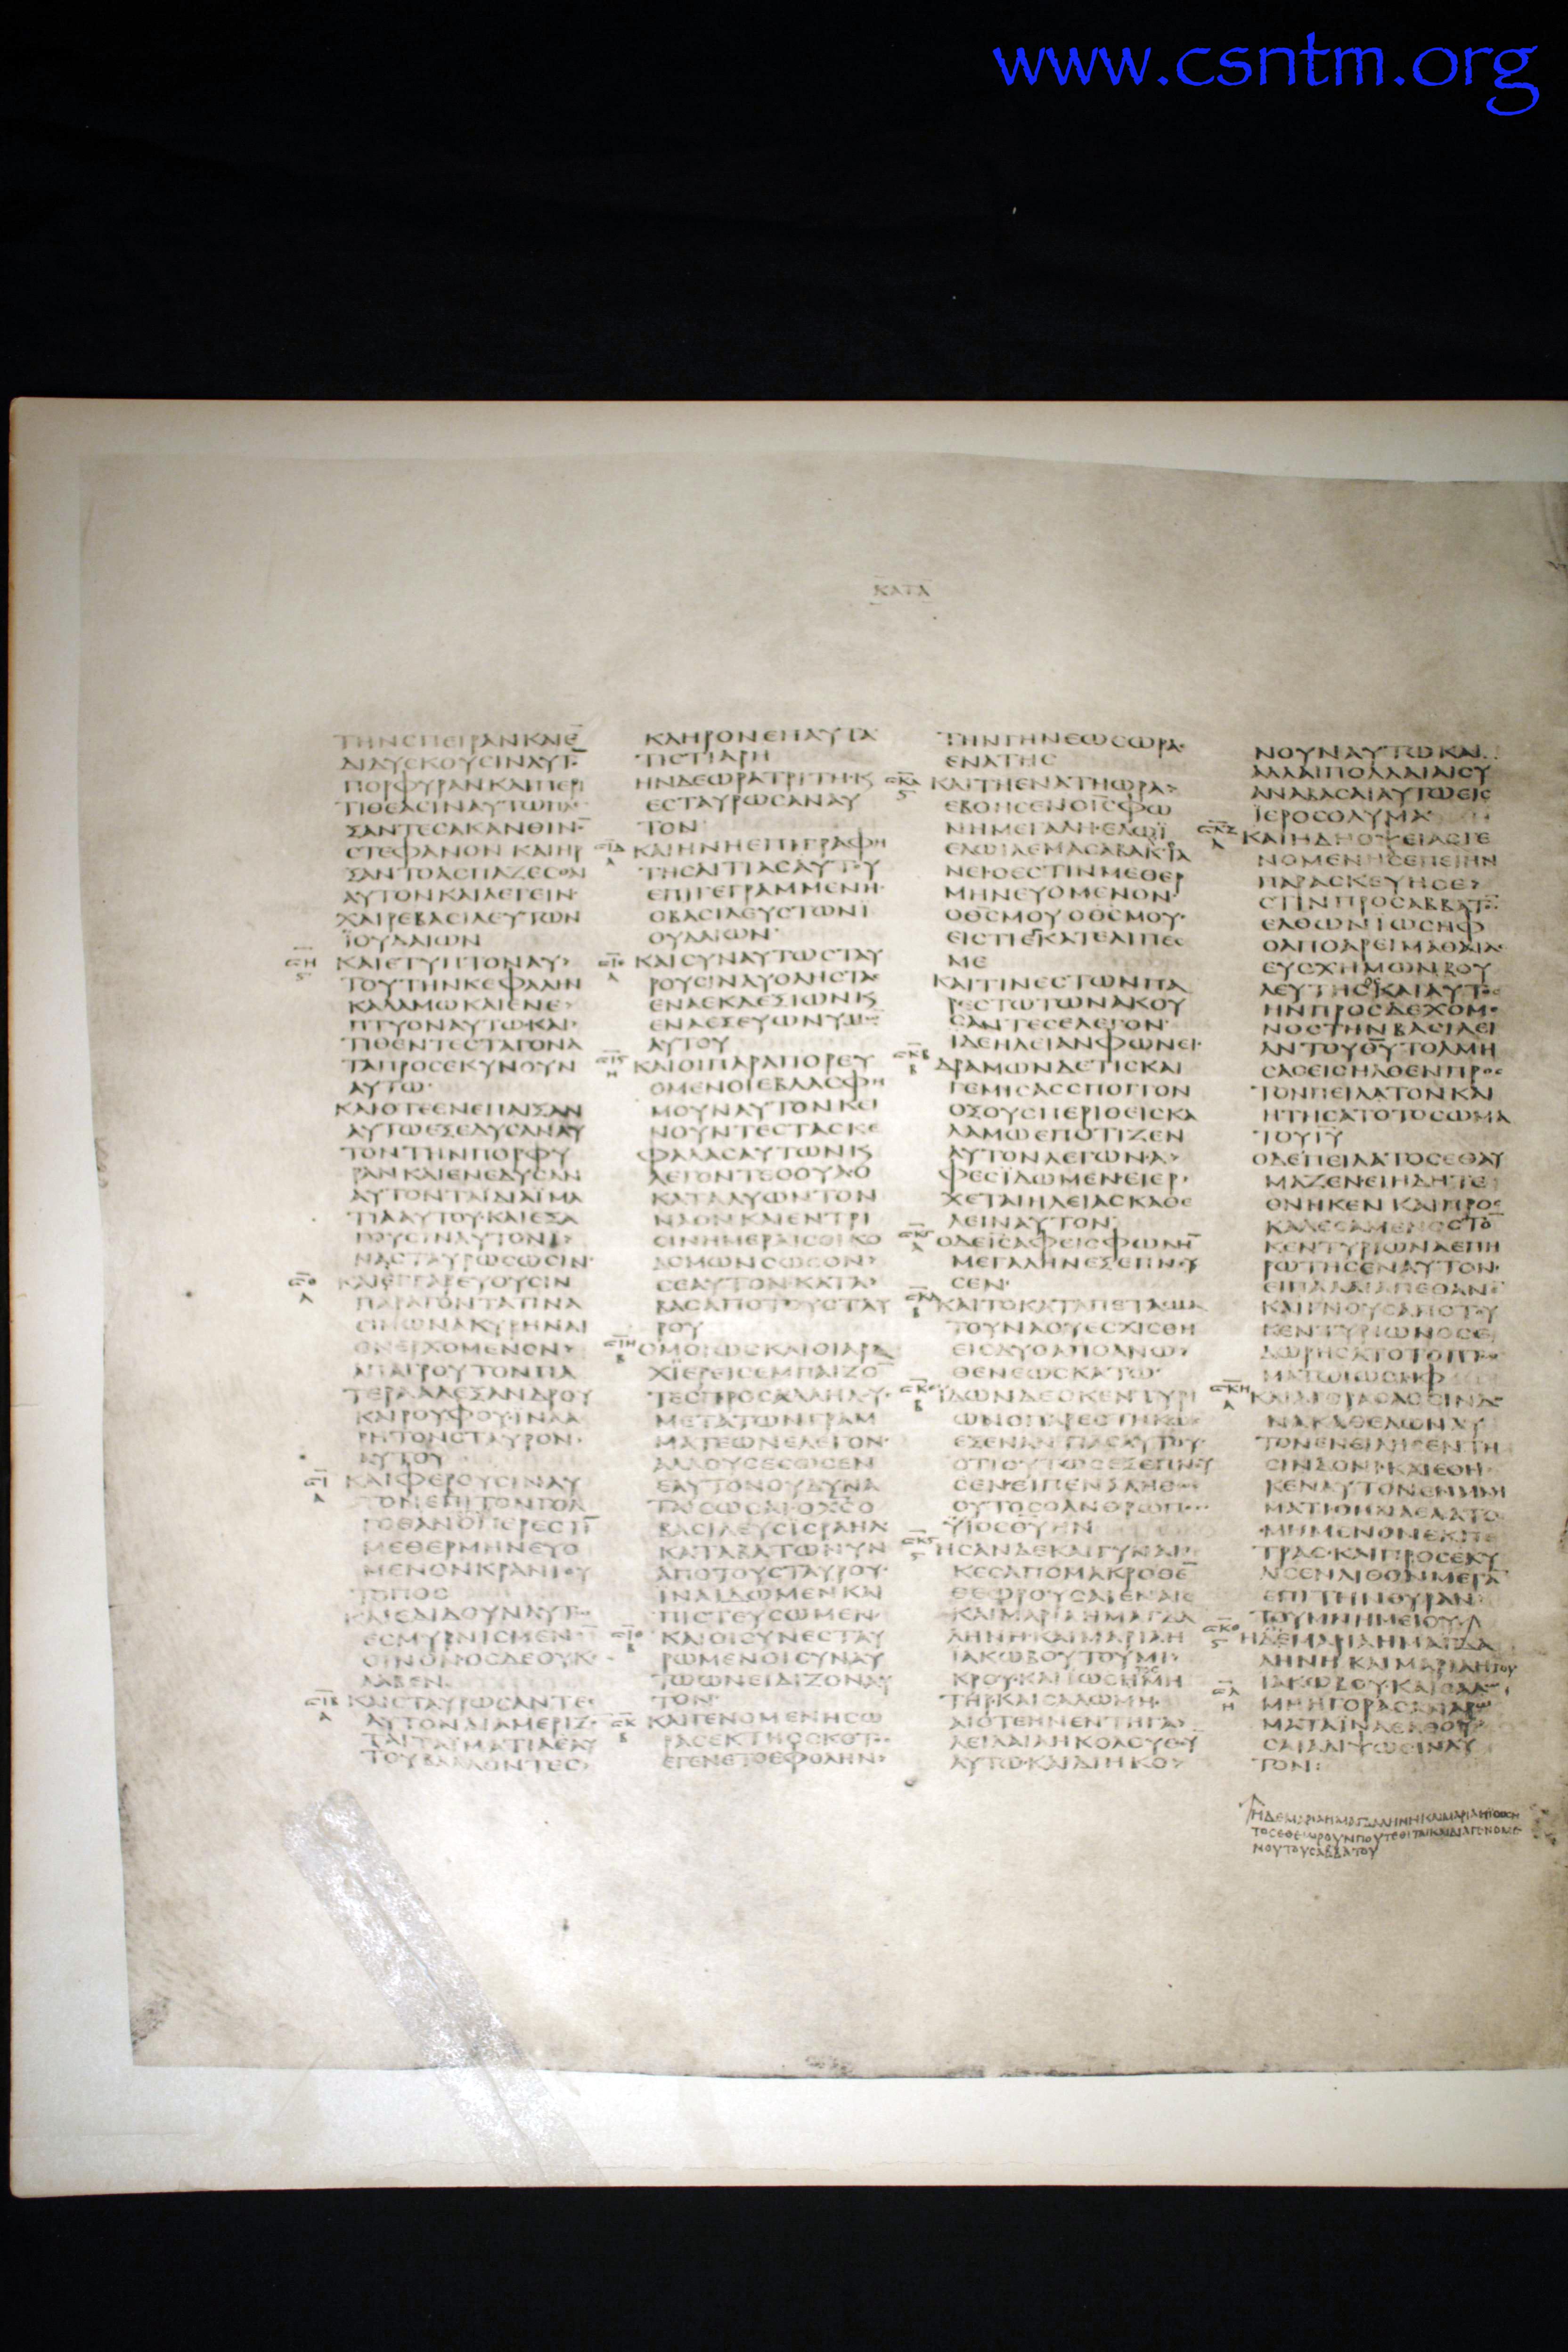 www.csntm.org
ΚΑΤΑ
ΤΗΝϹΠΕΙΡΑΝΚΑΙΕ̅
ΔΙΔΥϹΚΟΥϹΙΝΑΥΤ̅
ΠΟΡΦΥΡΑΝΚΑΙΠΕΡΙ
ΤΙΘΕΑϹΙΝΑΥΤΩΠΛΕ
ΞΑΝΤΕϹΑΚΑΝΘΙΝ̅
ϹΤΕΦΑΝΟΝ ΚΑΙΗΡ
ΞΑΝΤΟΑϹΠΑΖΕϹΘΑΙ
ΑΥΤΟΝΚΑΙΛΕΓΕΙΝ
ΧΑΙΡΕΒΑϹΙΛΕΥΤΩΝ
ΪΟΥΔΑΙΩΝ
ΚΑΙΕΤΥΠΤΟΝΑΥ›
ΤΟΥΤΗΝΚΕΦΑΛΗΝ
ΚΑΛΑΜΩΚΑΙΕΝΕ›
ΠΤΥΟΝΑΥΤΩΚΑΙ
ΤΙΘΕΝΤΕϹΤΑΓΟΝΑ
ΤΑΠΡΟϹΕΚΥΝΟΥΝ
ΑΥΤΩ·
ΚΑΙΟΤΕΕΝΕΠΑΙΞΑΝ
ΑΥΤΩΕΞΕΔΥϹΑΝΑΥ
ΤΟΝΤΗΝΠΟΡΦΥ
ΡΑΝΚΑΙΕΝΕΔΥϹΑΝ
ΑΥΤΟΝΤΑΪΔΙΑΪΜΑ
ΤΙΑΑΥΤΟΥ·ΚΑΙΕΞΑ
ΓΟΥϹΙΝΑΥΤΟΝΙ›
ΝΑϹΤΑΥΡΩϹΩϹΙΝ·
ΚΑΙΕΓΓΑΡΕΥΟΥϹΙΝ
ΠΑΡΑΓΟΝΤΑΤΙΝΑ
ϹΙΜΩΝΑΚΥΡΗΝΑΙ
ΟΝΕΡΧΟΜΕΝΟΝ›
ΑΠΑΓΡΟΥΤΟΝΠΑ
ΤΕΡΑΑΛΕΞΑΝΔΡΟΥ
ΚΑΙΡΟΥΦΟΥ·ΙΝΑΑ
ΡΗΤΟΝϹΤΑΥΡΟΝ·
ΑΥΤΟΥ
ΚΑΙΦΕΡΟΥϹΙΝΑΥ
ΤΟΝΕΠΙΤΟΝΓΟΛ
ΓΟΘΑΝΟΠΕΡΕϹΤΙ̅
ΜΕΘΕΡΜΗΝΕΥΟ
ΜΕΝΟΝΚΡΑΝΙΟΥ
ΤΟΠΟϹ
ΚΑΙΕΔΙΔΟΥΝΑΥΤΩ
ΕϹΜΥΡΝΙϹΜΕΝΟΝ
ΟΙΝΟΝΟϹΔΕΟΥΚ
ΕΛΑΒΕΝ·
ΚΑΙϹΤΑΥΡΩϹΑΝΤΕϹ
ΑΥΤΟΝΔΙΑΜΕΡΙΖΟ
ΤΑΙΤΑΪΜΑΤΙΑΑΥ
ΤΟΥΒΑΛΛΟΝΤΕϹ›
ΚΛΗΡΟΝΕΠΑΥΤΑ
ΤΙϹΤΙΑΡΗ
ΗΝΔΕΩΡΑΤΡΙΤΗΚ
ΕϹΤΑΥΡΩϹΑΝΑΥ
ΤΟΝ
ΚΑΙΗΝΗΕΠΙΓΡΑΦΗ
ΤΗϹΑΙΤΙΑϹΑΥΤΟΥ
ΕΠΙΓΕΓΡΑΜΜΕΝΗ·
ΟΒΑϹΙΛΕΥϹΤΩΝΙ
ΟΥΔΑΙΩΝ·
ΚΑΙϹΥΝΑΥΤΩϹΤΑΥ
ΡΟΥϹΙΝΔΥΟΛΗϹΤΑ·
ΕΝΑΕΚΔΕΞΙΩΝΚ
ΕΝΑΕΞΕΥΩΝΥΜΩ
ΑΥΤΟΥ
ΚΑΙΟΙΠΑΡΑΠΟΡΕΥ
ΟΜΕΝΟΙΕΒΛΑϹΦΗ
ΜΟΥΝΑΥΤΟΝΚΕΙ
ΝΟΥΝΤΕϹΤΑϹΚΕ
ΦΑΛΑϹΑΥΤΩΝΚ
ΛΕΓΟΝΤΕϹΟΟΥΑΟ
ΚΑΤΑΛΥΩΝΤΟΝ
ΝΑΟΝΚΑΙΕΝΤΡΙ
ϹΙΝΗΜΕΡΑΙϹΟΙΚΟ
ΔΟΜΩΝϹΩϹΟΝ›
ϹΕΑΥΤΟΝΚΑΤΑ›
ΒΑϹΑΠΟΤΟΥϹΤΑΥ
ΡΟΥ
ΟΜΟΙΩϹΚΑΙΟΙΑΡ
ΧΪΕΡΕΙϹΕΜΠΑΙΖΟ̅
ΤΕϹΠΡΟϹΑΛΛΗΛΟΥϹ
ΜΕΤΑΤΩΝΓΡΑΜ
ΜΑΤΕΩΝΕΛΕΓΟΝ·
ΑΛΛΟΥϹΕϹΩϹΕΝ
ΕΑΥΤΟΝΟΥΔΥΝΑ
ΤΑΙϹΩϹΑΙ·ΟΧ̅Ϲ̅Ο
ΒΑϹΙΛΕΥϹΙϹΡΑΗΛ
ΚΑΤΑΒΑΤΩΝΥΝ
ΑΠΟΤΟΥϹΤΑΥΡΟΥ·
ΙΝΑΙΔΩΜΕΝΚΑΙ
ΠΙϹΤΕΥϹΩΜΕΝ·
ΚΑΙΟΙϹΥΝΕϹΤΑΥ
ΡΩΜΕΝΟΙϹΥΝΑΥ
ΤΩΩΝΕΙΔΙΖΟΝΑΥ
ΤΟΝ·
ΚΑΙΓΕΝΟΜΕΝΗϹΩ
ΡΑϹΕΚΤΗϹϹΚΟΤΟϹ
ΕΓΕΝΕΤΟΕΦΟΛΗΝ›
ΤΗΝΓΗΝΕΩϹΩΡΑ·
ΕΝΑΤΗϹ
ΚΑΙΤΗΕΝΑΤΗΩΡΑ›
ΕΒΟΗϹΕΝΟΙ̅Ϲ̅ΦΩ
ΝΗΜΕΓΑΛΗ·ΕΛΩΪ
ΕΛΩΙΛΕΜΑϹΑΒΑΚΤΑ
ΝΕΙ·ΟΕϹΤΙΝΜΕΘΕΡ
ΜΗΝΕΥΟΜΕΝΟΝ·
ΟΘ̅Ϲ̅ΜΟΥ ΟΘ̅Ϲ̅ΜΟΥ·
ΕΙϹΤΙΕΓΚΑΤΕΛΙΠΕϹ
ΜΕ
ΚΑΙΤΙΝΕϹΤΩΝΠΑ
ΡΕϹΤΩΤΩΝΑΚΟΥ
ϹΑΝΤΕϹΕΛΕΓΟΝ·
ΙΔΕΗΛΕΙΑΝΦΩΝΕΙ·
ΔΡΑΜΩΝΔΕΤΙϹΚΑΙ
ΓΕΜΙϹΑϹϹΠΟΓΓΟΝ
ΟΞΟΥϹΠΕΡΙΘΕΙϹΚΑ
ΛΑΜΩΕΠΟΤΙΖΕΝ
ΑΥΤΟΝΛΕΓΩΝΑ›
ΦΕϹΪΔΩΜΕΝΕΙΕΡ·
ΧΕΤΑΙΗΛΕΙΑϹΚΑΘΕ
ΛΕΙΝΑΥΤΟΝ
ΟΔΕΙ̅Ϲ̅ΑΦΕΙϹΦΩΝΗ̅
ΜΕΓΑΛΗΝΕΞΕΠΝΕΥ
ϹΕΝ·
ΚΑΙΤΟΚΑΤΑΠΕΤΑϹΜΑ
ΤΟΥΝΑΟΥΕϹΧΙϹΘΗ
ΕΙϹΔΥΟΑΠΟΑΝΩ›
ΘΕΝΕΩϹΚΑΤΩ·
ΪΔΩΝΔΕΟΚΕΝΤΥΡΙ
ΩΝΟΠΑΡΕϹΤΗΚΩϹ
ΕΞΕΝΑΝΤΙΑϹΑΥΤΟΥ
ΟΤΙΟΥΤΩϹΕΞΕΠΝΕΥ
ϹΕΝΕΙΠΕΝ
ΟΥΤΟϹΟΑΝΘΡΩΠΟϹ
ΫΙΟϹΘ̅Υ̅ΗΝ
ΗϹΑΝΔΕΚΑΙΓΥΝΑΙ›
ΚΕϹΑΠΟΜΑΚΡΟΘΕ̅
ΘΕΩΡΟΥϹΑΙΕΝΑΙϹ
ΚΑΙΜΑΡΙΑΗΜΑΓΔΑ
ΛΗΝΗ·ΚΑΙΜΑΡΙΑΗ
ΪΑΚΩΒΟΥΤΟΥΜΙ·
ΚΡΟΥ·ΚΑΙΪΩϹΗΜΗ
ΤΗΡ·ΚΑΙϹΑΛΩΜΗ·
ΑΙΟΤΕΗΝΕΝΤΗΓΑ›
ΛΕΙΛΑΙΑΗΚΟΛΟΥΘΟΥ
ΑΥΤΩ·ΚΑΙΔΙΗΚΟ›
ΝΟΥΝΑΥΤΩΚΑΙ
ΑΛΛΑΙΠΟΛΛΑΙΑΙϹΥ
ΑΝΑΒΑϹΑΙΑΥΤΩΕΙϹ
ΪΕΡΟϹΟΛΥΜΑ
ΚΑΙΗΔΗΟΨΕΙΑϹΓΕ
ΝΟΜΕΝΗϹΕΠΕΙΗΝ
ΠΑΡΑϹΚΕΥΗΟΕ›
ϹΤΙΝΠΡΟϹΑΒΒΑΤΟ̅
ΕΛΘΩΝΙΩϹΗΦ
ΟΑΠΟΑΡΕΙΜΑΘΑΙΑ·
ΕΥϹΧΗΜΩΝΒΟΥ
ΛΕΥΤΗϹΚΑΙΑΥΤΟϹ
ΗΝΠΡΟϹΔΕΧΟΜΕ
ΝΟϹΤΗΝΒΑϹΙΛΕΙ
ΑΝΤΟΥΘ̅Υ̅ΤΟΛΜΗ
ϹΑϹΕΙϹΗΛΘΕΝΠΡΟϹ
ΤΟΝΠΕΙΛΑΤΟΝΚΑΙ
ΗΤΗϹΑΤΟΤΟϹΩΜΑ
ΤΟΥΙ̅Υ̅
ΟΔΕΠΕΙΛΑΤΟϹΕΘΑΥ
ΜΑΖΕΝΕΙΗΔΗΤΕ
ΘΝΗΚΕΝ ΚΑΙΠΡΟϹ
ΚΑΛΕϹΑΜΕΝΟϹΤΟ̅
ΚΕΝΤΥΡΙΩΝΑΕΠΗ
ΡΩΤΗϹΕΝΑΥΤΟΝ·
ΕΙΠΑΛΑΙΑΠΕΘΑΝΕ
ΚΑΙΓΝΟΥϹΑΠΟΤΟΥ
ΚΕΝΤΥΡΙΩΝΟϹΕ
ΔΩΡΗϹΑΤΟΤΟΠΤΩ
ΜΑΤΩΙΩϹΗΦ
ΚΑΙΑΓΟΡΑϹΑϹϹΙΝΔΟ
ΝΑΚΑΘΕΛΩΝΑΥ
ΤΟΝΕΝΕΙΛΗϹΕΝΤΗ
ϹΙΝΔΟΝΙ·ΚΑΙΕΘΗ
ΚΕΝΑΥΤΟΝΕΝΜΝΗ
ΜΑΤΙΟΗΝΛΕΛΑΤΟ
ΜΗΜΕΝΟΝΕΚΠΕ
ΤΡΑϹ·ΚΑΙΠΡΟϹΕΚΥ
ΛΙϹΕΝΛΙΘΟΝΜΕΓΑ̅
ΕΠΙΤΗΝΘΥΡΑΝ
ΤΟΥΜΝΗΜΕΙΟΥ
ΗΔΕΜΑΡΙΑΗΜΑΓΔΑ
ΛΗΝΗ ΚΑΙΜΑΡΙΑΗΤΟΥ
ΙΑΚΩΒΟΥΚΑΙϹΑΛΩ
ΜΗΗΓΟΡΑϹΑΝΑΡΩ
ΜΑΤΑΪΝΑΕΛΘΟΥ
ϹΑΙΑΛΙΨΩϹΙΝΑΥ
ΤΟΝ:
ΗΔΕΜΑΡΙΑΗΜΑΓΔΑΛΗΝΗΚΑΙΜΑΡΙΑΗΪΩϹΗ
ΤΟϹΕΘΕΩΡΟΥΝΠΟΥΤΕΘΙΤΑΙΚΑΙΔΙΑΓΕΝΟΜΕ
ΝΟΥΤΟΥϹΑΒΒΑΤΟΥ